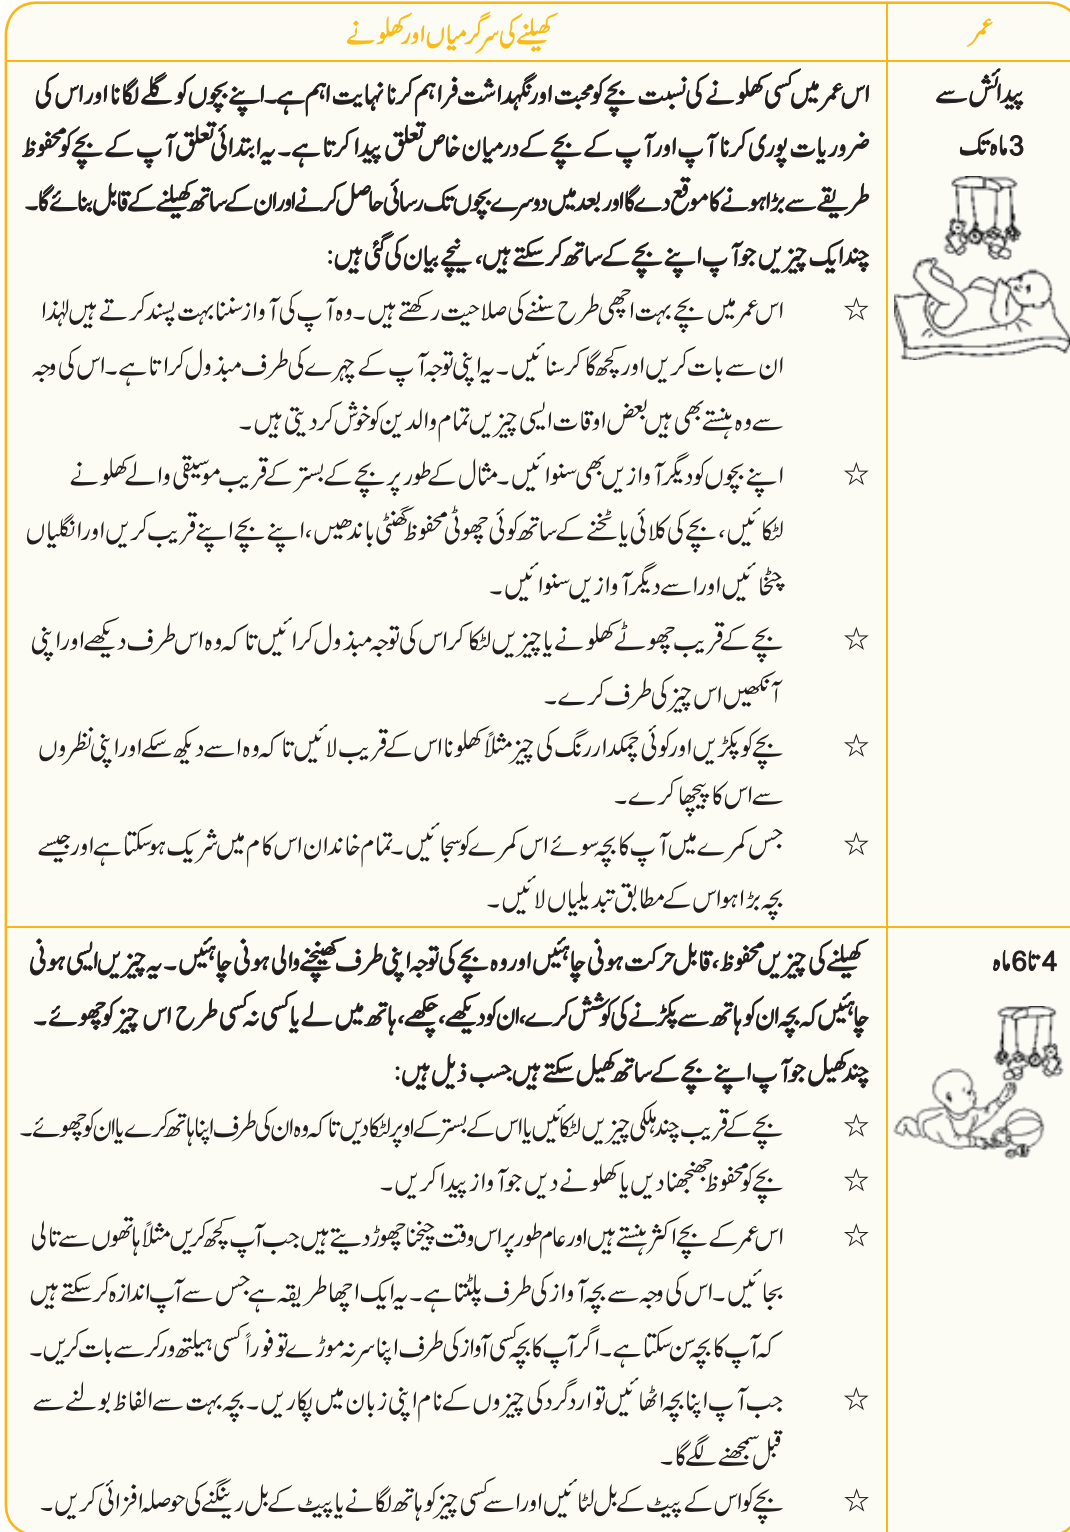 عمر
کھیلنے کی سرگرمیاں اور کھلونے
پیدائش سے
3 ماہ تک
اس عمر میں کسی کھلونے کی نسبت بچے کو محبت اور نگہداشت فراہم کرنا نہایت اہم ہے۔ اپنے بچوں کو گلے لگانا اور اس کی
ضروریات پوری کرنا آپ اور آپ کے بچے کے درمیان خاص تعلق پیدا کرتا ہے۔ یہ ابتدائی تعلق آپ کے بچے کو محفوظ
طریقے سے بڑا ہونے کا موقع دے گا اور بعد میں دوسرے بچوں تک رسائی حاصل کرنے اور ان کے ساتھ کھیلنے کے قابل بنائے گا۔
چند ایک چیزیں جو آپ اپنے بچے کے ساتھ کر سکتے ہیں، نیچے بیان کی گئی ہیں:
☆ اس عمر میں بچے بہت اچھی طرح سننے کی صلاحیت رکھتے ہیں۔ وہ آپ کی آواز سننا بہت پسند کرتے ہیں لہٰذا
ان سے بات کریں اور کچھ گا کر سنائیں۔ یہ اپنی توجہ آپ کے چہرے کی طرف مبذول کراتا ہے۔ اس کی وجہ
سے وہ ہنستے بھی ہیں بعض اوقات ایسی چیزیں تمام والدین کو خوش کر دیتی ہیں۔
☆ اپنے بچوں کو دیگر آوازیں بھی سنوائیں۔ مثال کے طور پر بچے کے بستر کے قریب موسیقی والے کھلونے
لٹکائیں، بچے کی کلائی یا ٹخنے کے ساتھ کوئی چھوٹی محفوظ گھنٹی باندھیں، اپنے بچے اپنے قریب کریں اور انگلیاں
چٹخائیں اور اسے دیگر آوازیں سنوائیں۔
☆ بچے کے قریب چھوٹے کھلونے یا چیزیں لٹکا کر اس کی توجہ مبذول کرائیں تا کہ وہ اس طرف دیکھے اور اپنی
آنکھیں اس چیز کی طرف کرے۔
☆ بچے کو پکڑیں اور کوئی چمکدار رنگ کی چیز مثلاً کھلونا اس کے قریب لائیں تا کہ وہ اسے دیکھ سکے اور اپنی نظروں
سے اس کا پیچھا کرے۔
☆ جس کمرے میں آپ کا بچہ سوئے اس کمرے کو سجائیں۔ تمام خاندان اس کام میں شریک ہو سکتا ہے اور جیسے
بچہ بڑا ہو اس کے مطابق تبدیلیاں لائیں۔
4 تا 6 ماہ
کھیلنے کی چیزیں محفوظ، قابل حرکت ہونی چاہئیں اور وہ بچے کی توجہ اپنی طرف کھینچنے والی ہونی چاہئیں۔ یہ چیزیں ایسی ہونی
چاہئیں کہ بچہ ان کو ہاتھ سے پکڑنے کی کوشش کرے، ان کو دیکھے، چکھے، ہاتھ میں لے یا کسی نہ کسی طرح اس چیز کو چھوئے۔
چند کھیل جو آپ اپنے بچے کے ساتھ کھیل سکتے ہیں حسب ذیل ہیں:
☆ بچے کے قریب چند ہلکی چیزیں لٹکائیں یا اس کے بستر کے اوپر لٹکا دیں تا کہ وہ ان کی طرف اپنا ہاتھ کرے یا ان کو چھوئے۔
☆ بچے کو محفوظ جھنجھنا دیں یا کھلونے دیں جو آواز پیدا کریں۔
☆ اس عمر کے بچے اکثر ہنستے ہیں اور عام طور پر اس وقت چیخنا چھوڑ دیتے ہیں جب آپ کچھ کریں مثلاً ہاتھوں سے تالی
بجائیں۔ اس کی وجہ سے بچہ آواز کی طرف پلٹتا ہے۔ یہ ایک اچھا طریقہ ہے جس سے آپ اندازہ کر سکتے ہیں
کہ آپ کا بچہ سن سکتا ہے۔ اگر آپ کا بچہ کسی آواز کی طرف اپنا سر نہ موڑے تو فوراً کسی ہیلتھ ورکر سے بات کریں۔
☆ جب آپ اپنا بچہ اٹھائیں تو ارد گرد کی چیزوں کے نام اپنی زبان میں پکاریں۔ بچہ بہت سے الفاظ بولنے سے
قبل سمجھنے لگے گا۔
☆ بچے کو اس کے پیٹ کے بل لٹائیں اور اسے کسی چیز کو ہاتھ لگانے یا پیٹ کے بل رینگنے کی حوصلہ افزائی کریں۔